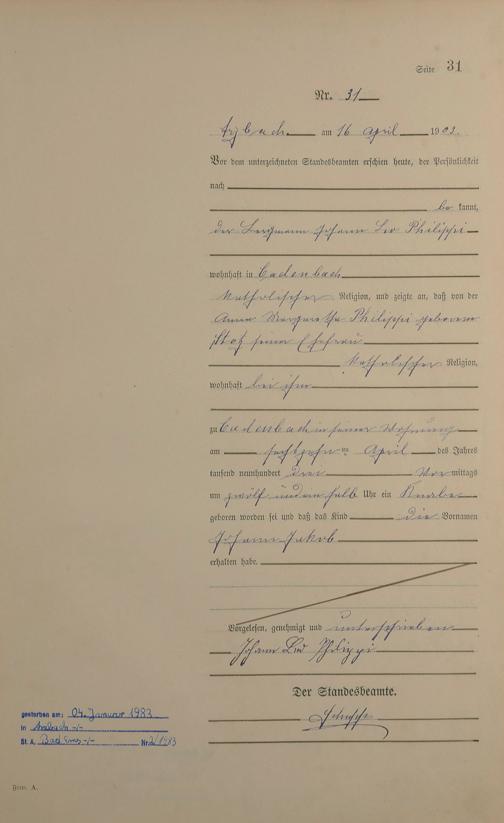 Seite 31
Nr. 31
Arzbach am 16 April 1903.
Vor dem unterzeichneten Standesbeamten erschien heute, der Persönlichkeit
nach
be kannt,
der Bergmann Johann Leo Philippi
wohnhaft in Cadenbach
katholischer Religion, und zeigte an, daß von der
Anna Margaretha Philippi geborenen
seiner Ehefrau
katholischer Religion,
wohnhaft bei ihm
zu Cadenbach in seiner Wohnung
am sechszehnten April des Jahres
tausend neunhundert drei Vor mittags
um zwölf und ein halb Uhr ein Knabe
geboren worden sei und daß das Kind die Vornamen
Johann Jakob
erhalten habe.
Vorgelesen, genehmigt und unterschrieben
Johann Leo Philippi
Der Standesbeamte.
gestorben am: 04. Januar 1983
in Arzbach -/-
St. A. Bad Ems -/- Nr. 2/1983
Form. A.